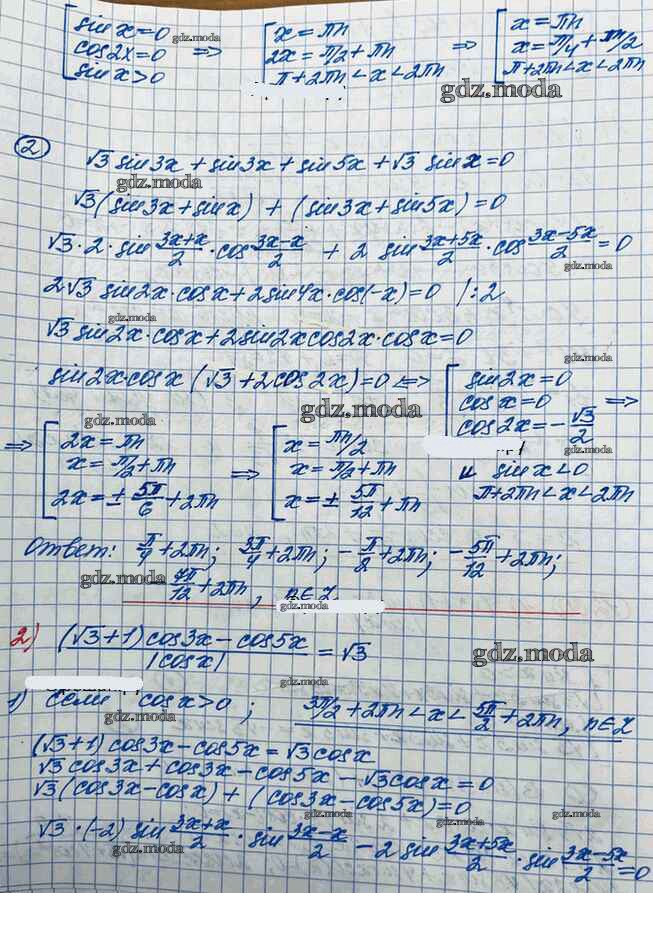 [ sin x = 0
cos2x = 0
sin x > 0
=> [ x = πn
2x = π/2 + πn
π + 2πn < x < 2πn
=> [ x = πn
x = π/4 + πn/2
π + 2πn < x < 2πn
gdz.moda
gdz.moda
② √3 sin3x + sin3x + sin5x + √3 sin x = 0
gdz.moda
√3(sin3x + sin x) + (sin3x + sin5x) = 0
gdz.moda
√3 · 2 · sin (3x+x)/2 · cos (3x-x)/2 + 2 sin (3x+5x)/2 · cos (3x-5x)/2 = 0
gdz.moda
2√3 sin2x · cosx + 2 sin4x · cos(-x) = 0 | : 2
gdz.moda
√3 sin2x · cosx + 2 sin2x cos2x · cosx = 0
gdz.moda
sin2x cosx (√3 + 2cos2x) = 0 <=> [ sin2x = 0
cos x = 0
cos2x = -√3/2
=>
и sin x < 0
π + 2πn < x < 2πn
gdz.moda
gdz.moda
gdz.moda
=> [ 2x = πn
x = π/2 + πn
2x = ± 5π/6 + 2πn
=> [ x = πn/2
x = π/2 + πn
x = ± 5π/12 + πn
gdz.moda
Ответ: π/4 + 2πn; 3π/4 + 2πn; -π/2 + 2πn; -5π/12 + 2πn;
gdz.moda
- 7π/12 + 2πn, n∈Z
gdz.moda
2) ((√3+1) cos3x - cos5x)/|cos x| = √3
gdz.moda
1) если cos x > 0; 3π/2 + 2πn < x < 5π/2 + 2πn, n∈Z
gdz.moda
(√3+1) cos3x - cos5x = √3 cosx
√3 cos3x + cos3x - cos5x - √3 cosx = 0
√3(cos3x - cosx) + (cos3x - cos5x) = 0
gdz.moda
gdz.moda
√3 · (-2) sin (3x+x)/2 · sin (3x-x)/2 - 2 sin (3x+5x)/2 · sin (3x-5x)/2 = 0
gdz.moda
gdz.moda